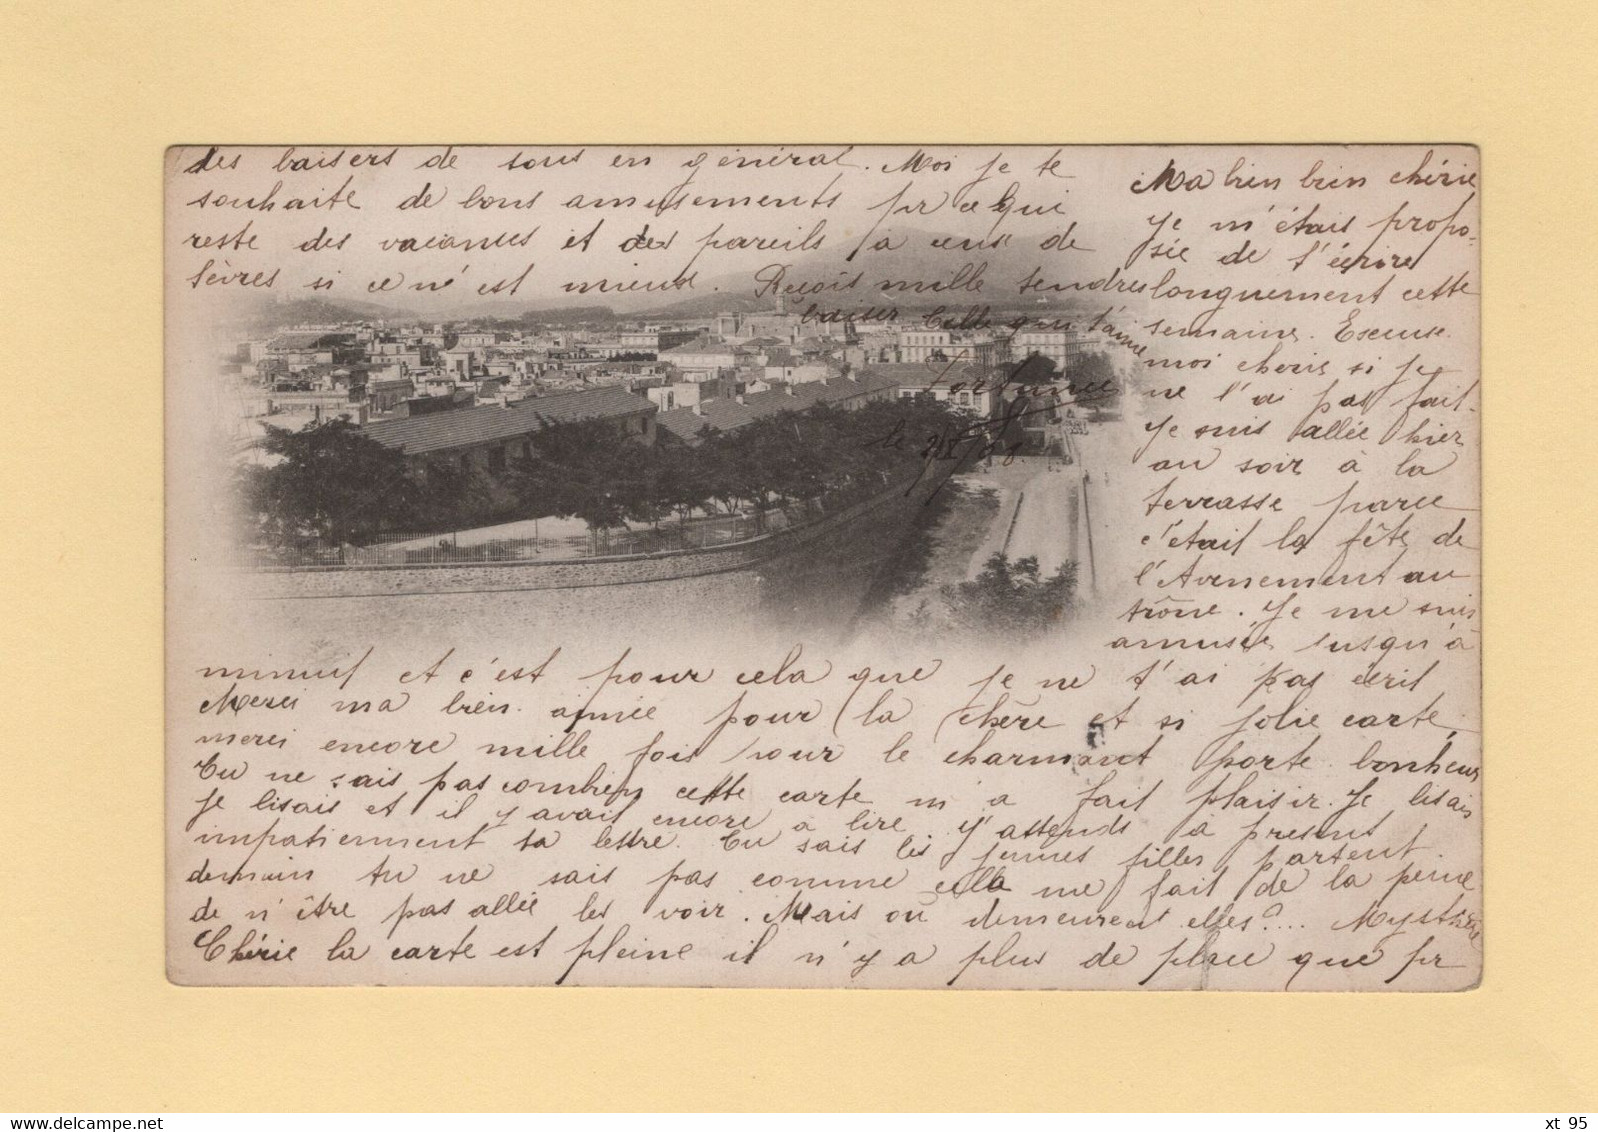 Ma bien bien chérie
Je m'étais propo-
sée de t'écrire
longuement cette
semaine. Excuse
moi cherie si je
ne l'ai pas fait.
Je suis allée hier
au soir à la
terrasse parce
c'était la fête de
l'Avenement au
trône. Je me suis
amusée jusqu'à
minuit et c'est pour cela que je ne t'ai pas écrit
Merci ma bien aimée pour la chère et si jolie carte,
merci encore mille fois pour le charmant porte bonheur
Tu ne sais pas combien cette carte m'a fait plaisir. Je lisais
je lisais et il y avait encore a lire. J'attends à present
impatiemment ta lettre. Tu sais les jeunes filles partent
demain tu ne sais pas comme cela me fait de la peine
de n'être pas allée les voir. Mais où demeurent elles?... Mystère
Chérie la carte est pleine il n'y a plus de place que pr
des baisers de tous en général. Moi je te
souhaite de bons amusements pr ce qui
reste des vacances et des pareils à ceux de
Sèvres si ce n'est mieux. Reçois mille tendres
baiser Celle qui t'aime
Fortunée
le
xt 95